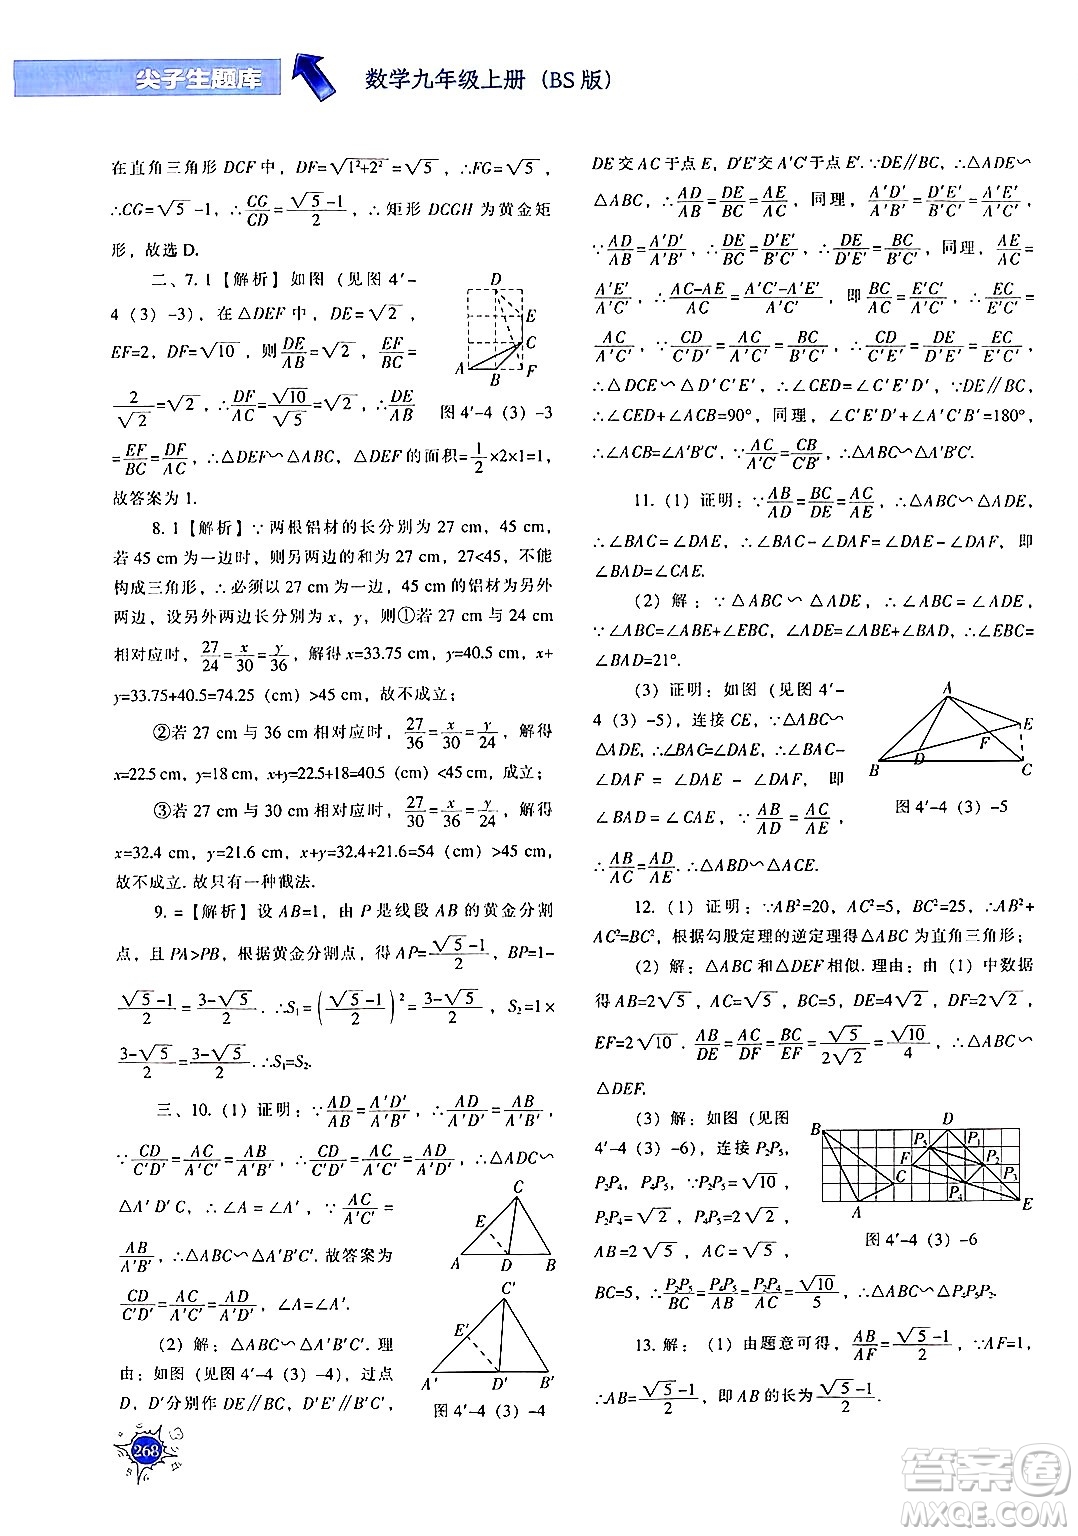 尖子生题库
数学九年级上册（BS版）
在直角三角形 DCF 中，DF=√(1²+2²)=√5，∴FG=√5，
∴CG=√5-1，∴CG/CD=(√5-1)/2，∴矩形 DCGH 为黄金矩
形，故选 D.
二、7. 1【解析】如图（见图 4′-
4（3）-3），在△DEF 中，DE=√2，
EF=2，DF=√10，则DE/AB=√2，EF/BC=
2/√2=√2，∴DF/AC=√10/√5=√2，∴DE/AB
=EF/BC=DF/AC，∴△DEF∽△ABC，△DEF 的面积=1/2×2×1=1，
故答案为 1.
D
E
C
A
B
F
图 4′-4（3）-3
8. 1【解析】∵两根铝材的长分别为 27 cm，45 cm，
若 45 cm 为一边时，则另两边的和为 27 cm，27<45，不能
构成三角形，∴必须以 27 cm 为一边，45 cm 的铝材为另外
两边，设另外两边长分别为 x，y，则①若 27 cm 与 24 cm
相对应时，27/24=x/30=y/36，解得 x=33.75 cm，y=40.5 cm，x+
y=33.75+40.5=74.25（cm）>45 cm，故不成立；
②若 27 cm 与 36 cm 相对应时，27/36=x/30=y/24，解得
x=22.5 cm，y=18 cm，x+y=22.5+18=40.5（cm）<45 cm，成立；
③若 27 cm 与 30 cm 相对应时，27/30=x/36=y/24，解得
x=32.4 cm，y=21.6 cm，x+y=32.4+21.6=54（cm）>45 cm，
故不成立. 故只有一种截法.
9. =【解析】设 AB=1，由 P 是线段 AB 的黄金分割
点，且 PA>PB，根据黄金分割点，得 AP=(√5-1)/2，BP=1-
(√5-1)/2=(3-√5)/2. ∴S₁=((√5-1)/2)²=(3-√5)/2，S₂=1×
(3-√5)/2=(3-√5)/2. ∴S₁=S₂.
三、10.（1）证明：∵AD/AB=A′D′/A′B′，∴AD/A′D′=AB/A′B′，
∵CD/C′D′=AC/A′C′=AB/A′B′，∴CD/C′D′=AC/A′C′=AD/A′D′，∴△ADC∽
△A′D′C，∴∠A=∠A′，∵AC/A′C′=
AB/A′B′，∴△ABC∽△A′B′C′. 故答案为
CD/C′D′=AC/A′C′=AD/A′D′，∠A=∠A′.
（2）解：△ABC∽△A′B′C′. 理
由：如图（见图 4′-4（3）-4），过点
D，D′分别作 DE∥BC，D′E′∥B′C′，
C
E
A
D
B
C′
E′
A′
D′
B′
图 4′-4（3）-4
268
DE 交 AC 于点 E，D′E′交 A′C′于点 E′. ∵DE∥BC，∴△ADE∽
△ABC，∴AD/AB=DE/BC=AE/AC，同理，A′D′/A′B′=D′E′/B′C′=A′E′/A′C′，
∵AD/AB=A′D′/A′B′，∴DE/BC=D′E′/B′C′，∴DE/D′E′=BC/B′C′，同理，AE/AC=
A′E′/A′C′，∴(AC-AE)/AC=(A′C′-A′E′)/A′C′，即EC/AC=E′C′/A′C′，∴EC/E′C′=
AC/A′C′，∴CD/C′D′=AC/A′C′=BC/B′C′，∴CD/C′D′=DE/D′E′=EC/E′C′，
∴△DCE∽△D′C′E′，∴∠CED=∠C′E′D′，∵DE∥BC，
∴∠CED+∠ACB=90°，同理，∠C′E′D′+∠A′C′B′=180°，
∴∠ACB=∠A′C′B′. ∵AC/A′C′=CB/C′B′，∴△ABC∽△A′B′C′.
11.（1）证明：∵AB/AD=BC/DE=AC/AE，∴△ABC∽△ADE，
∴∠BAC=∠DAE，∴∠BAC-∠DAF=∠DAE-∠DAF，即
∠BAD=∠CAE.
（2）解：∵△ABC∽△ADE，∴∠ABC=∠ADE，
∵∠ABC=∠ABE+∠EBC，∠ADE=∠ABE+∠BAD，∴∠EBC=
∠BAD=21°.
（3）证明：如图（见图 4′-
4（3）-5），连接 CE，∵△ABC∽
△ADE，∴∠BAC=∠DAE，∴∠BAC-
∠DAF=∠DAE-∠DAF，即
∠BAD=∠CAE，∵AB/AD=AC/AE，
∴AB/AC=AD/AE. ∴△ABD∽△ACE.
A
E
F
B
D
C
图 4′-4（3）-5
12.（1）证明：∵AB²=20，AC²=5，BC²=25，∴AB²+
AC²=BC²，根据勾股定理的逆定理得△ABC 为直角三角形；
（2）解：△ABC 和△DEF 相似. 理由：由（1）中数据
得 AB=2√5，AC=√5，BC=5，DE=4√2，DF=2√2，
EF=2√10. AB/DE=AC/DF=BC/EF=√5/(2√2)=√10/4，∴△ABC∽
△DEF.
（3）解：如图（见图
4′-4（3）-6），连接 P₂P₅，
P₂P₄，P₄P₅，∵P₂P₅=√10，
P₂P₄=√2，P₄P₅=2√2，
AB=2√5，AC=√5，
BC=5，∴P₂P₅/BC=P₄P₅/AB=P₂P₄/AC=√10/5，∴△ABC∽△P₄P₅P₂.
B
P₅
D
P₁
F
P₂
C
P₃
P₄
A
E
图 4′-4（3）-6
13. 解：（1）由题意可得，AB/AF=(√5-1)/2，∵AF=1，
∴AB=(√5-1)/2，即 AB 的长为(√5-1)/2.
答案圈
MXQE.COM